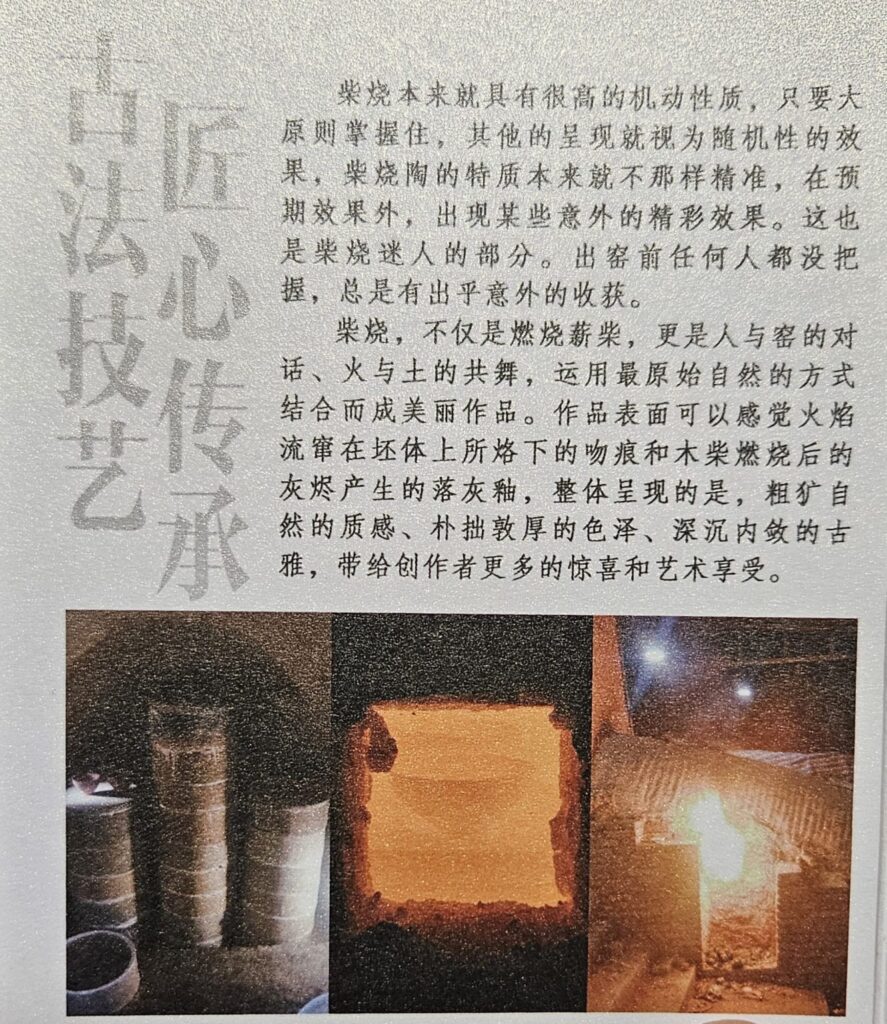 匠心传承
古法技艺
柴烧本来就具有很高的机动性质，只要大
原则掌握住，其他的呈现就视为随机性的效
果，柴烧陶的特质本来就不那样精准，在预
期效果外，出现某些意外的精彩效果。这也
是柴烧迷人的部分。出窑前任何人都没把
握，总是有出乎意外的收获。
柴烧，不仅是燃烧薪柴，更是人与窑的对
话、火与土的共舞，运用最原始自然的方式
结合而成美丽作品。作品表面可以感觉火焰
流窜在坯体上所烙下的吻痕和木柴燃烧后的
灰烬产生的落灰釉，整体呈现的是，粗犷自
然的质感、朴拙敦厚的色泽、深沉内敛的古
雅，带给创作者更多的惊喜和艺术享受。